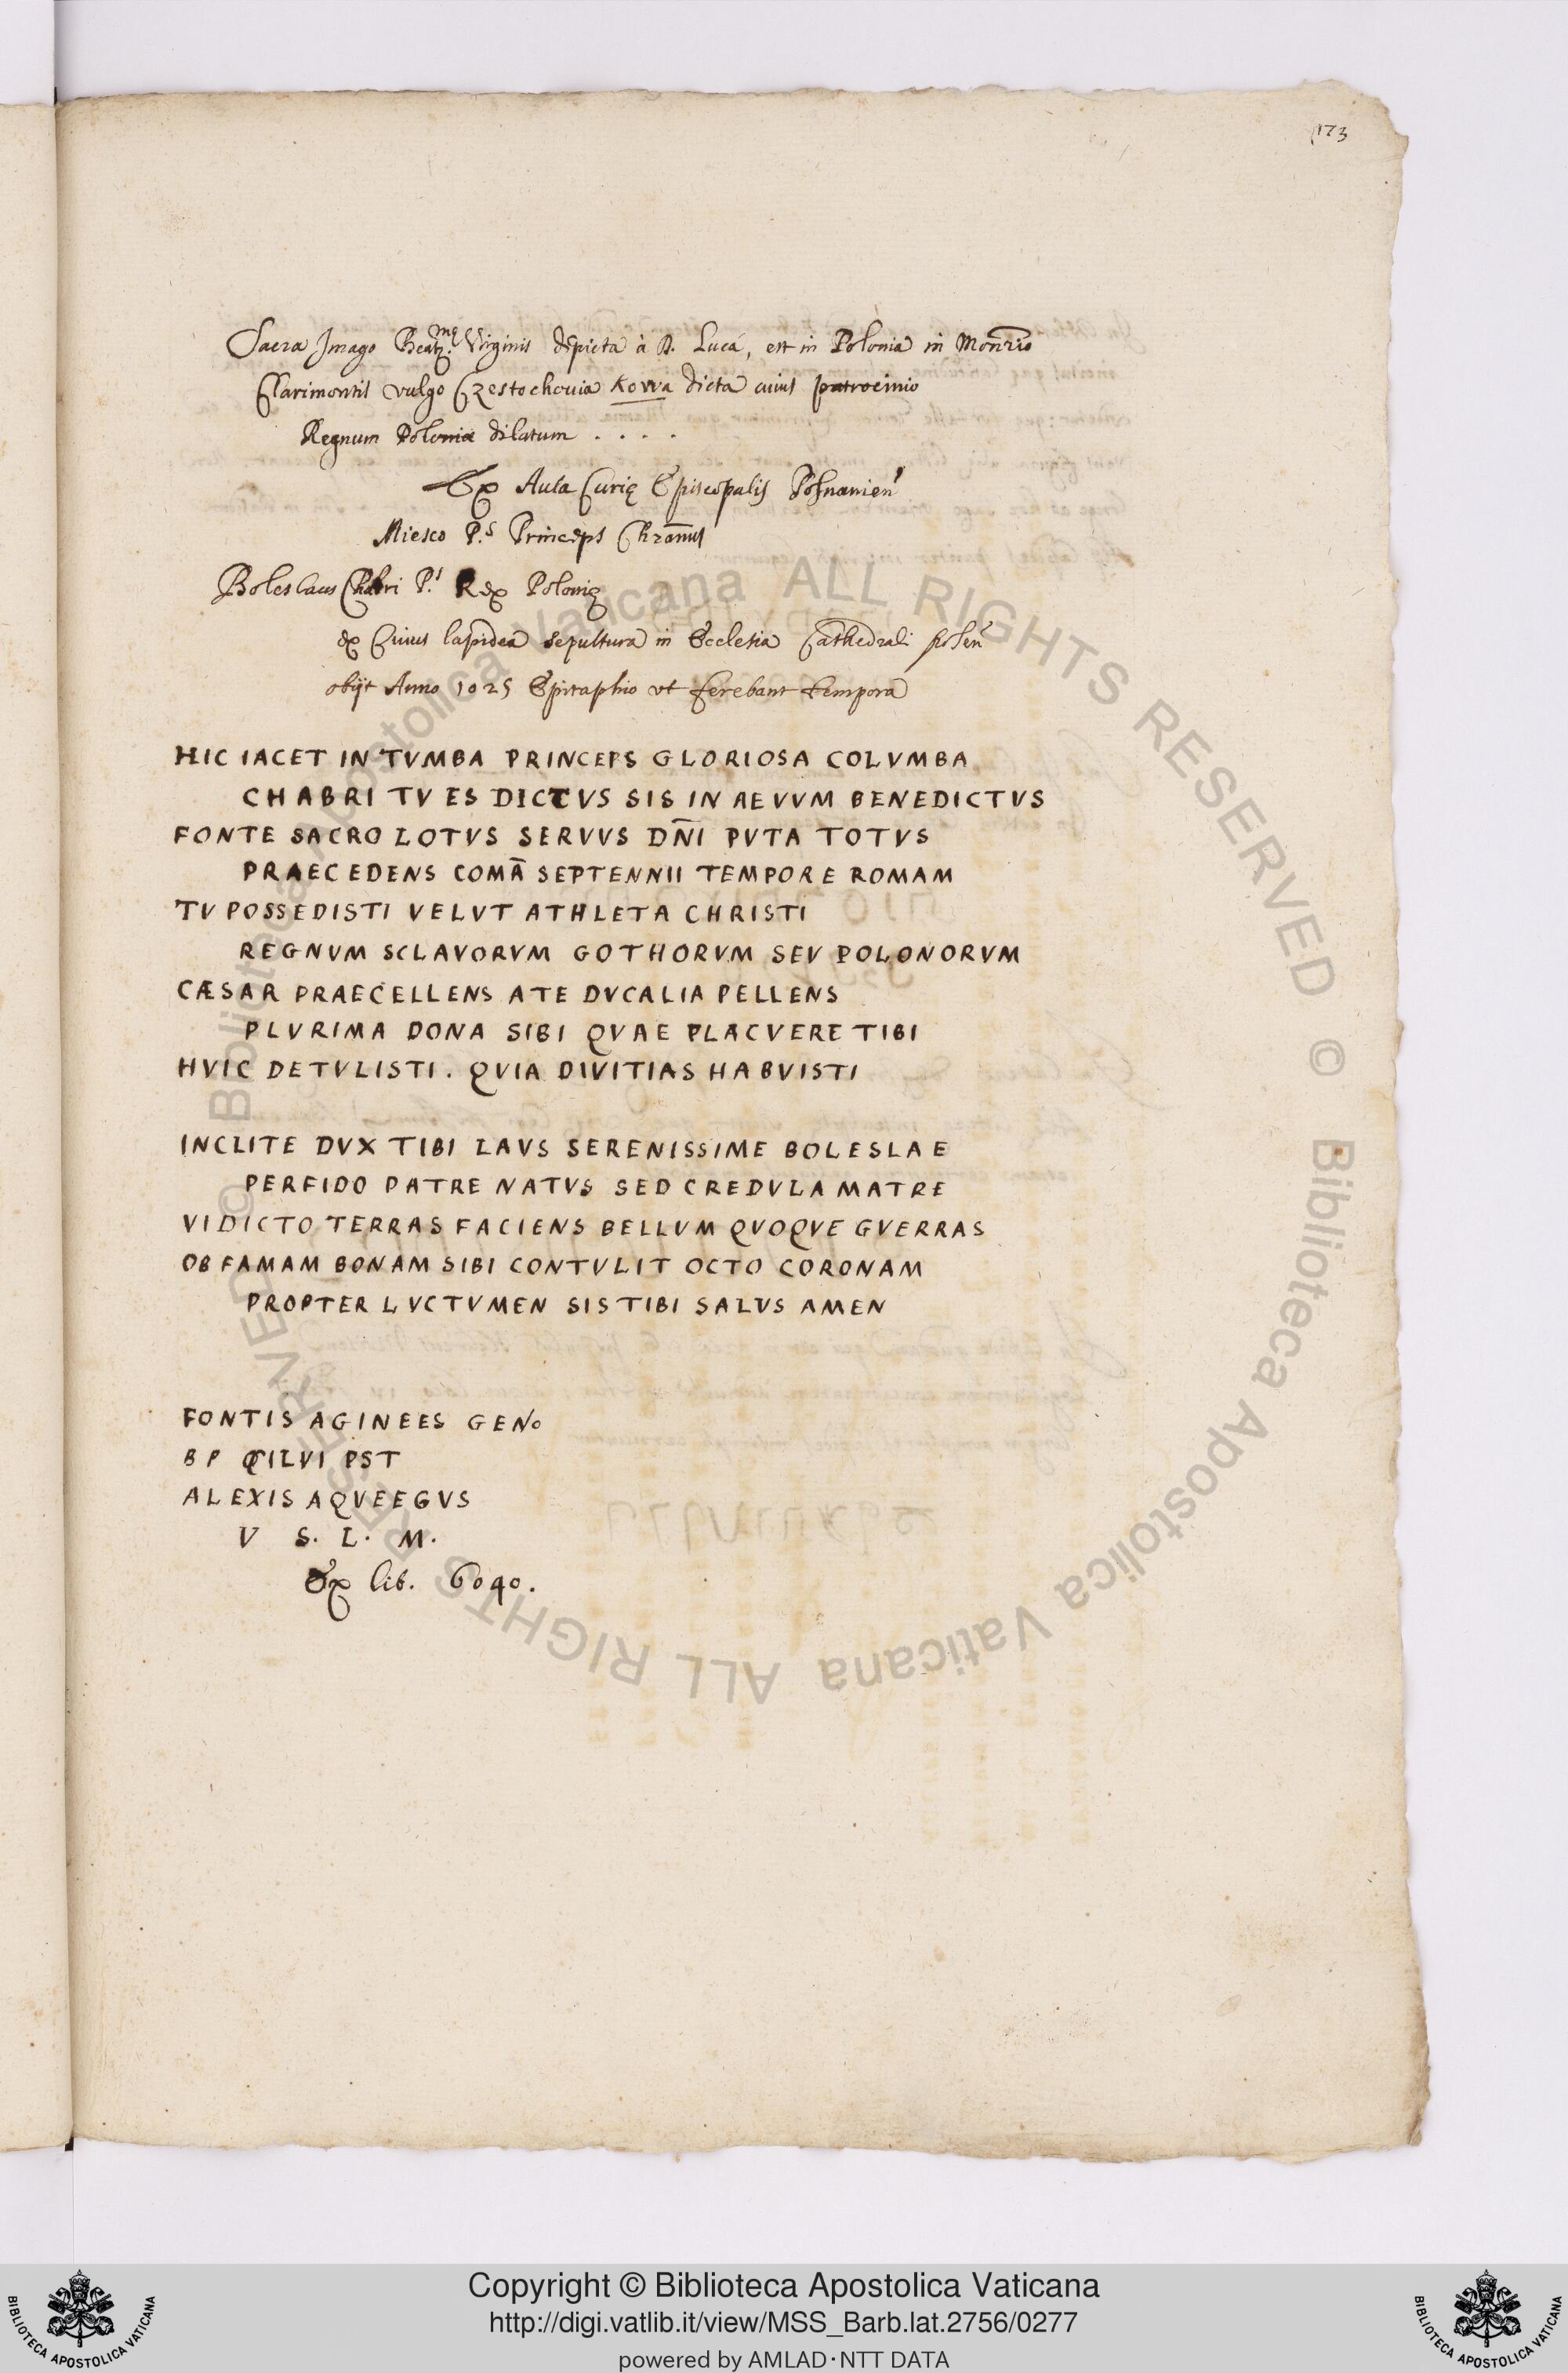 173
Sacra Imago Beatmę Virginis depicta à D. Luca, est in Polonia in Monrio
Clarimontis vulgo Czestochouia Kowa dicta cuius patrocinio
Regnum Poloniæ dilatum . . . .
Ex Aula Curię Episcopalis Posnanien
Miesco P.s Princeps Chranus
Boleslaus Chabri P.s Rex Polonię
ex Cuius lapidea sepultura in Ecclesia Cathedrali posen
obijt Anno 1025 Epitaphio vt ferebant tempora
HIC IACET IN TVMBA PRINCEPS GLORIOSA COLVMBA
CHABRI TV ES DICTVS SIS IN AEVVM BENEDICTVS
FONTE SACRO LOTVS SERVVS DN̄I PVTA TOTVS
PRAECEDENS COMĀ SEPTENNII TEMPORE ROMAM
TV POSSEDISTI VELVT ATHLETA CHRISTI
REGNVM SCLAVORVM GOTHORVM SEV POLONORVM
CÆSAR PRAECELLENS A TE DVCALIA PELLENS
PLVRIMA DONA SIBI QVAE PLACVERE TIBI
HVIC DETVLISTI. QVIA DIVITIAS HABVISTI
INCLITE DVX TIBI LAVS SERENISSIME BOLESLAE
PERFIDO PATRE NATVS SED CREDVLA MATRE
VIDICTO TERRAS FACIENS BELLVM QVOQVE GVERRAS
OB FAMAM BONAM SIBI CONTVLIT OCTO CORONAM
PROPTER LVCTVMEN SIS TIBI SALVS AMEN
FONTIS AGINEES GENo
B P QILVI PST
ALEXIS AQVEEGVS
V S. L. M.
Ex lib. 6040.
© Biblioteca Apostolica Vaticana ALL RIGHTS RESERVED © Biblioteca Apostolica Vaticana ALL RIGHTS RESERVED
Copyright © Biblioteca Apostolica Vaticana
http://digi.vatlib.it/view/MSS_Barb.lat.2756/0277
powered by AMLAD·NTT DATA
BIBLIOTECA APOSTOLICA VATICANA
BIBLIOTECA APOSTOLICA VATICANA